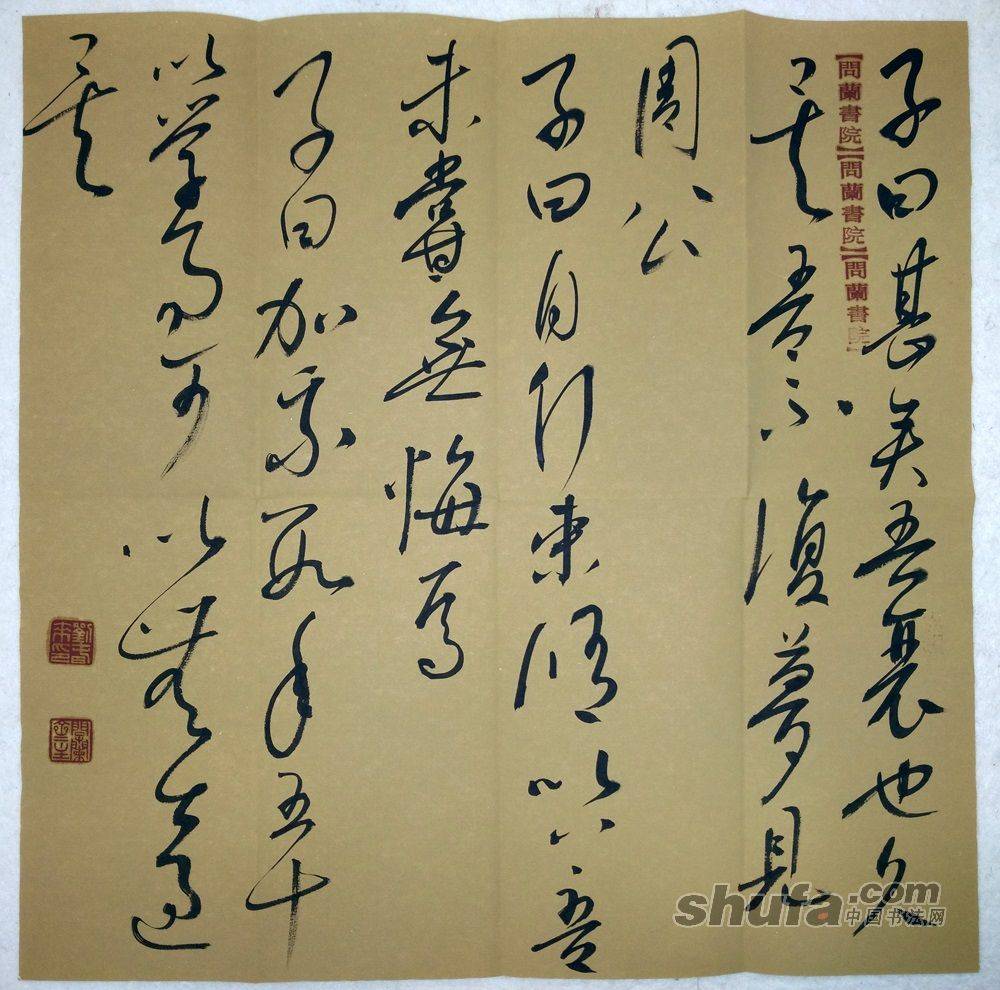 子曰甚矣吾衰也久
矣吾不復夢見
周公
子曰自行束脩以上吾
未嘗無悔焉
子曰加我數年五十
以學易可以無大過
矣
【問蘭書院】【問蘭書院】【問蘭書院】
shufa.com
中国书法网